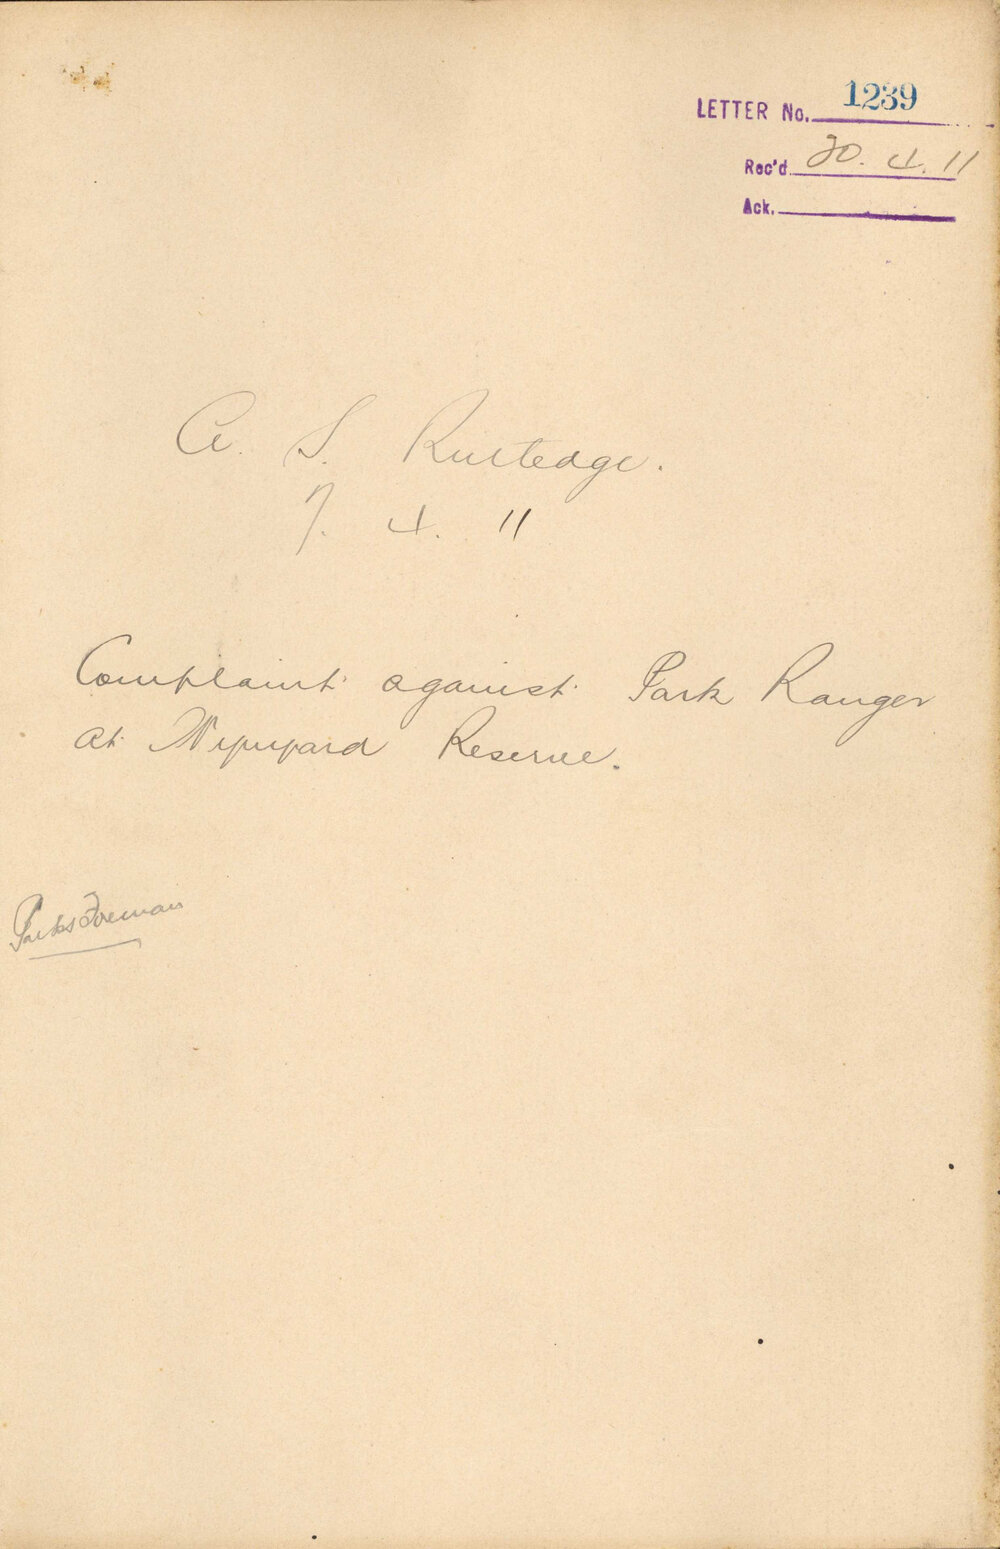 LETTER No. 1239
Rec'd 20. 4. 11
Ack.
A. S. Rutledge.
7. 4. 11
Complaint against Park Ranger
at Wynyard Reserve.
Parks Foreman